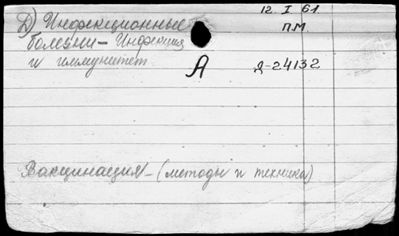 12. I 61
Д) Инфекционные
ПМ
болезни - Инфекция
и иммунитет
А
Д-24132
Вакцинация - (методы и техника)